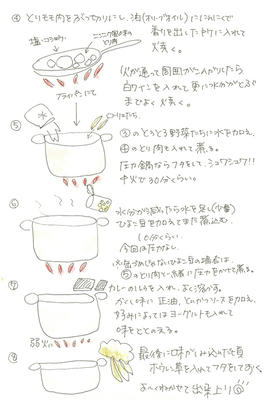 ④ とりモモ肉をぶつ切りにし、油(オリーブオイル)ににんにくで
香りを出した中に入れて
炎く。
塩、コショウ
ニンニク風味の
とり肉
フライパンにて
火が通って周囲がこんがりしたら
白ワインを入れて更に水分がとぶ
までよく炎く。
⑤
③のとろとろ野菜たちに水を加え、
④のとり肉も入れて煮る。
圧力鍋ならフタをして、シュワシュワ!!
中火で30分くらい。
⑥
水分が減ったら水を足し(少量)
ひよこ豆を加えてまた煮込む。
10分くらい
今回は圧力なし
⑤のとり肉と一緒に圧力をかけて煮る。
⑦
カレーのルウを入れ、よく溶かす。
かくし味に正油、とんかつソースを加え、
好みによってはヨーグルトも入れて
味をととのえる。
弱火に
⑧
最後に味がしみ込んだ頃
ホウレン草を入れてフタをしておく。
よーくわかせて出来上り